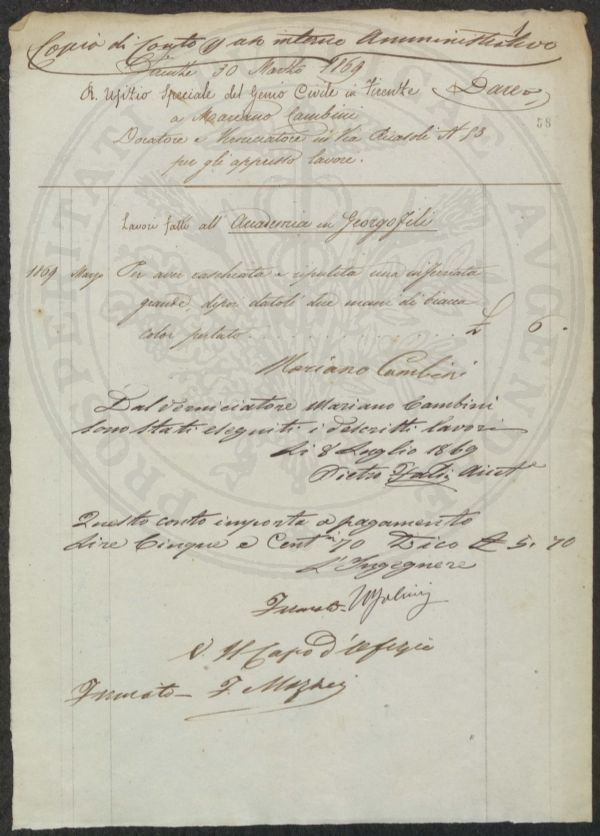 Copia di Conto p uso interno Amministrativo
Firenze 30 Marzo 1869
R. Ufizio Speciale del Genio Civile in Firenze Dare
58
a Mariano Cambini
Doratore e Verniciatore in Via Ricasoli N° 53
per gli appresso lavori.
Lavori fatti all' Accademia in Georgofili
1869 Marzo Per aver raschiata e ripulita una inferriata
grande, dipoi datoli due mani di biacca
color perlato £ 6.
Mariano Cambini
Dal Verniciatore Mariano Cambini
sono stati eseguiti i descritti lavori
Li 8 Luglio 1869
Pietro Aiut
Questo conto importa a pagamento
Lire Cinque e Cent.mi 70 Dico £ 5. 70
L'Ingegnere
Firmato
V. Il Capo d'Ufizio
Firmato F.
PROSPERITATI PUBLICAE AUGENDAE